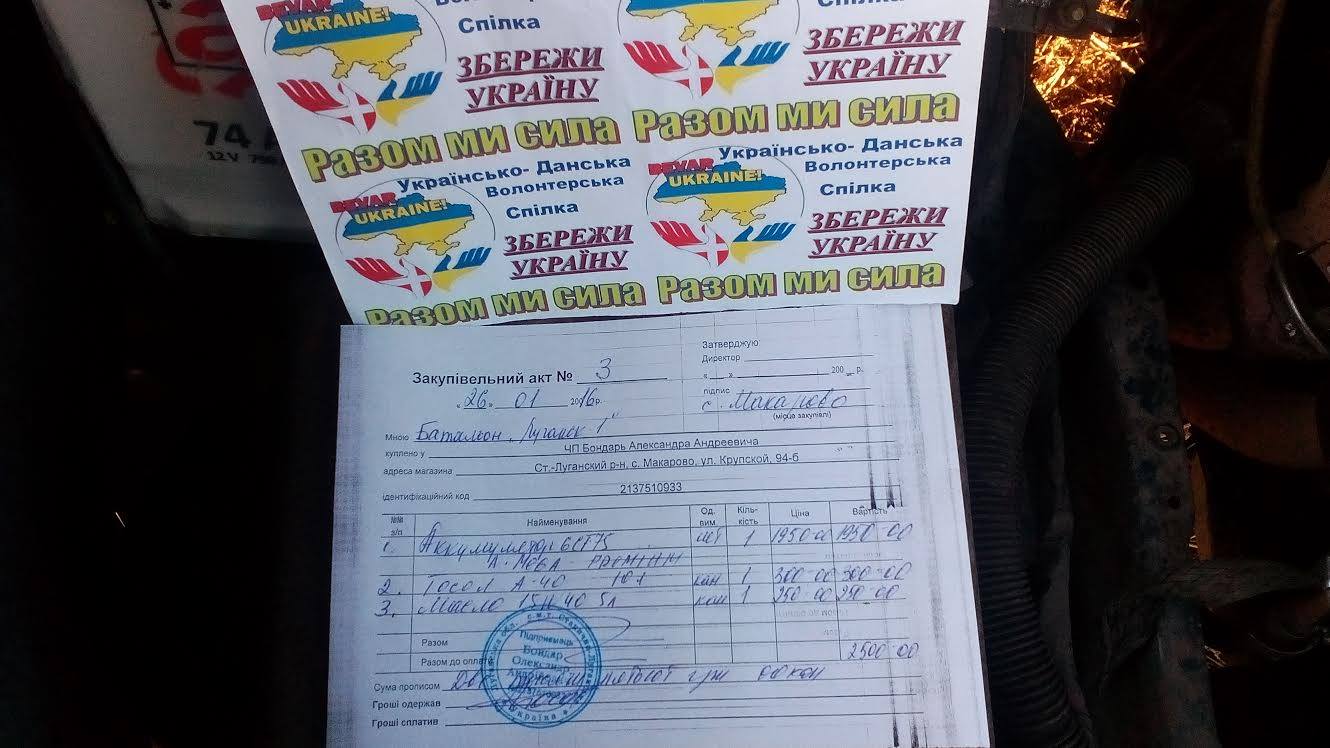 74
12V
BEVAR
UKRAINE!
Спілка
ЗБЕРЕЖИ
УКРАЇНУ
Разом ми сила
Спілка
ЗБЕРЕЖИ
УКРАЇНУ
Разом ми сила
BEVAR
UKRAINE!
Українсько- Данська
Волонтерська
Спілка
ЗБЕРЕЖИ
УКРАЇНУ
Разом ми сила
BEVAR
UKRAINE!
Українсько- Данська
Волонтерська
Спілка
ЗБЕРЕЖИ
УКРАЇНУ
Разом ми сила
Затверджую:
Директор
« » 200 р.
підпис
Закупівельний акт № 3
«26» 01 2016р.
с. Макарово
(місце закупівлі)
Мною Батальон "Луганск-1"
куплено у ЧП Бондарь Александра Андреевича
адреса магазина Ст.-Луганский р-н, с. Макарово, ул. Крупской, 94-б
ідентифікаційний код 2137510933
№№ з/п Найменування Од. вим. Кіль-кість Ціна Вартість
1. Аккумулятор 6СТ75 шт 1 1950-00 1950-00
А-МЕGА
2. Тосол А-40 10л кан 1 300-00 300-00
3. Масло 15W40 5л кан 1 250-00 250-00
Разом
Разом до оплати 2500-00
Сума прописом Две тысячи пятьсот грн 00 коп
Гроші одержав
Гроші сплатив
Підприємець
Бондар
Олександр
Україна